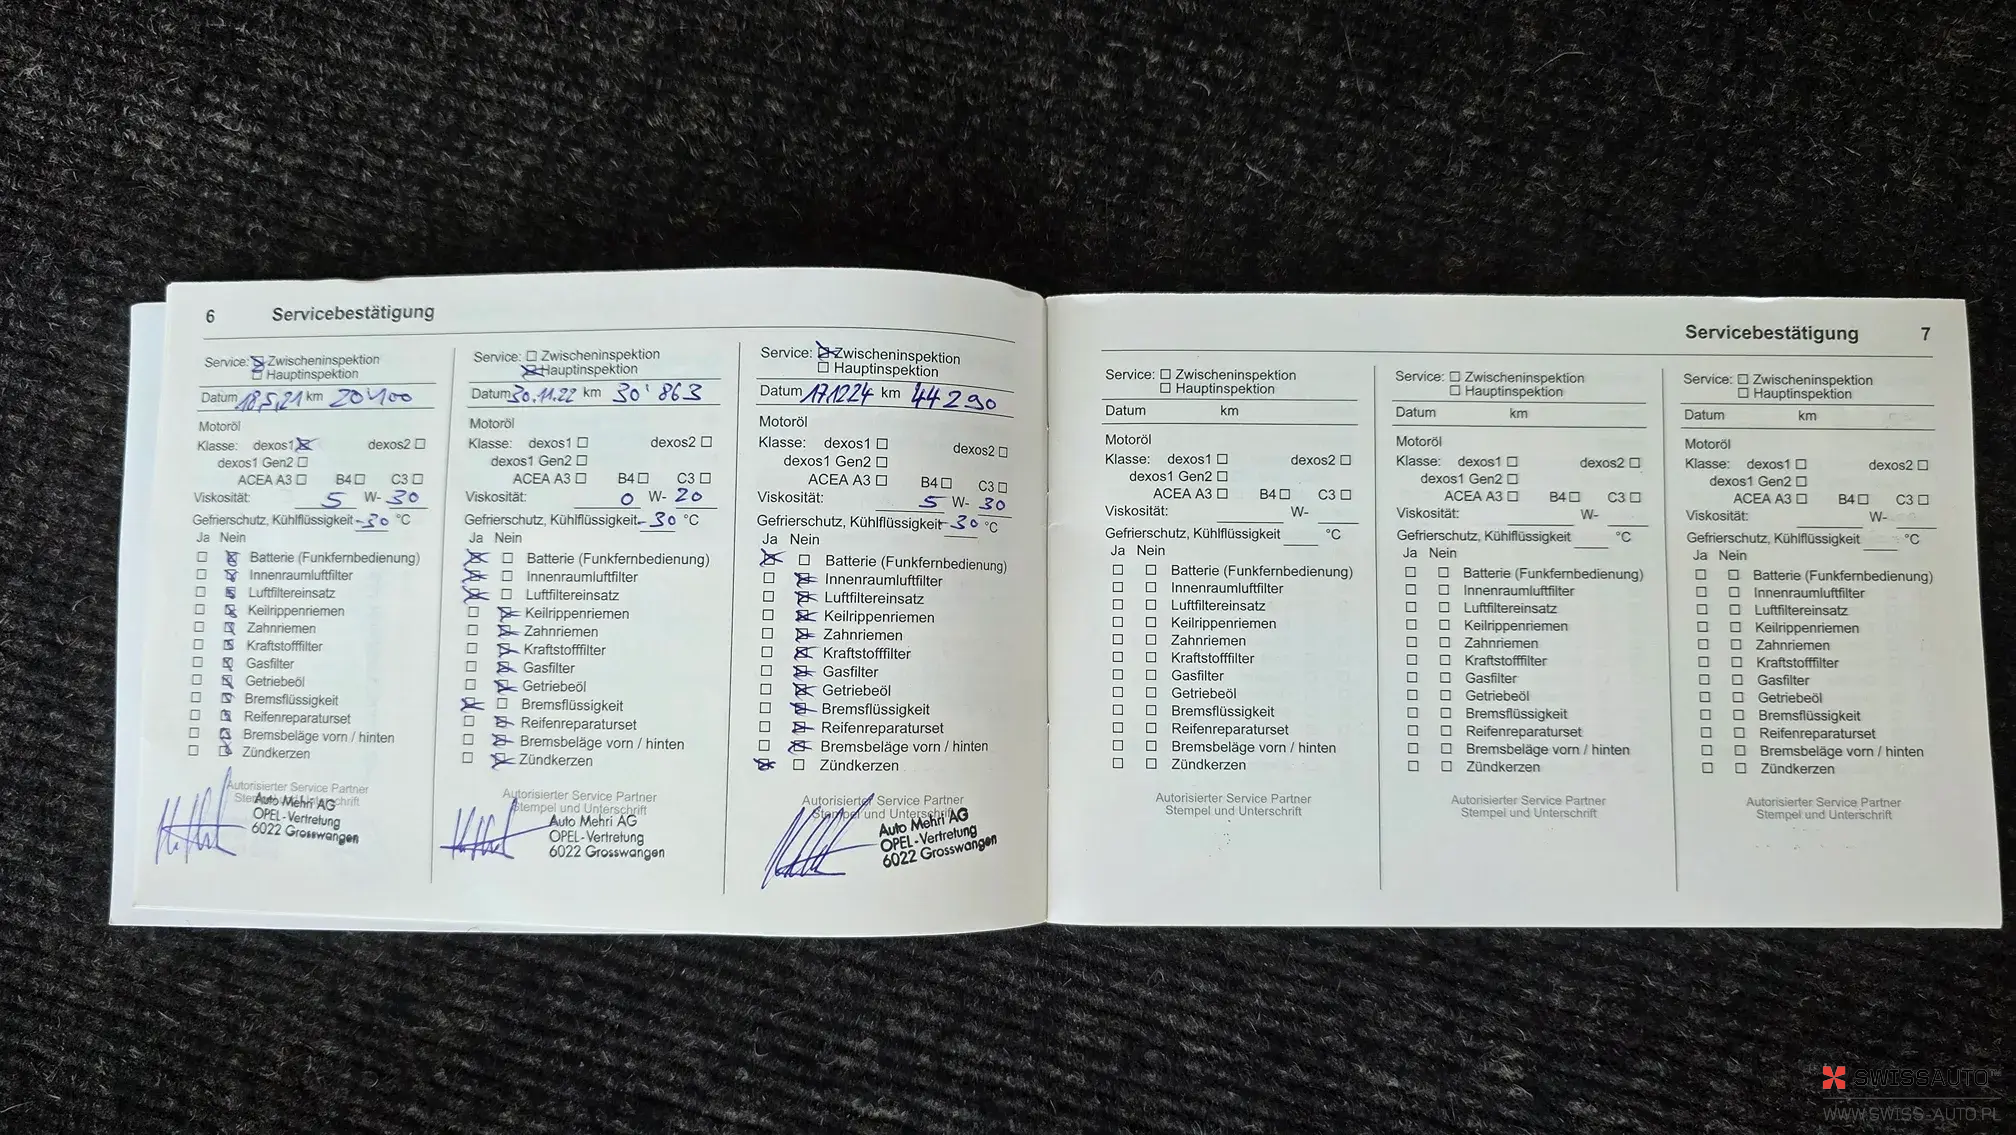 6 Servicebestätigung
Service: Zwischeninspektion
Hauptinspektion
Datum 18.5.21 km 20'100
Motoröl
Klasse: dexos1 dexos2
dexos1 Gen2
ACEA A3 B4 C3
Viskosität: 5 W- 30
Gefrierschutz, Kühlflüssigkeit -30 °C
Ja Nein
Batterie (Funkfernbedienung)
Innenraumluftfilter
Luftfiltereinsatz
Keilrippenriemen
Zahnriemen
Kraftstofffilter
Gasfilter
Getriebeöl
Bremsflüssigkeit
Reifenreparaturset
Bremsbeläge vorn / hinten
Zündkerzen
Autorisierter Service Partner
Stempel und Unterschrift
Auto Mehri AG
OPEL-Vertretung
6022 Grosswangen
Service: Zwischeninspektion
Hauptinspektion
Datum 30.11.22 km 30'863
Motoröl
Klasse: dexos1 dexos2
dexos1 Gen2
ACEA A3 B4 C3
Viskosität: 0 W- 20
Gefrierschutz, Kühlflüssigkeit -30 °C
Ja Nein
Batterie (Funkfernbedienung)
Innenraumluftfilter
Luftfiltereinsatz
Keilrippenriemen
Zahnriemen
Kraftstofffilter
Gasfilter
Getriebeöl
Bremsflüssigkeit
Reifenreparaturset
Bremsbeläge vorn / hinten
Zündkerzen
Autorisierter Service Partner
Stempel und Unterschrift
Auto Mehri AG
OPEL-Vertretung
6022 Grosswangen
Service: Zwischeninspektion
Hauptinspektion
Datum 17.12.24 km 44290
Motoröl
Klasse: dexos1 dexos2
dexos1 Gen2
ACEA A3 B4 C3
Viskosität: 5 W- 30
Gefrierschutz, Kühlflüssigkeit -30 °C
Ja Nein
Batterie (Funkfernbedienung)
Innenraumluftfilter
Luftfiltereinsatz
Keilrippenriemen
Zahnriemen
Kraftstofffilter
Gasfilter
Getriebeöl
Bremsflüssigkeit
Reifenreparaturset
Bremsbeläge vorn / hinten
Zündkerzen
Autorisierter Service Partner
Stempel und Unterschrift
Auto Mehri AG
OPEL-Vertretung
6022 Grosswangen
Servicebestätigung 7
Service: Zwischeninspektion
Hauptinspektion
Datum km
Motoröl
Klasse: dexos1 dexos2
dexos1 Gen2
ACEA A3 B4 C3
Viskosität: W-
Gefrierschutz, Kühlflüssigkeit °C
Ja Nein
Batterie (Funkfernbedienung)
Innenraumluftfilter
Luftfiltereinsatz
Keilrippenriemen
Zahnriemen
Kraftstofffilter
Gasfilter
Getriebeöl
Bremsflüssigkeit
Reifenreparaturset
Bremsbeläge vorn / hinten
Zündkerzen
Autorisierter Service Partner
Stempel und Unterschrift
Service: Zwischeninspektion
Hauptinspektion
Datum km
Motoröl
Klasse: dexos1 dexos2
dexos1 Gen2
ACEA A3 B4 C3
Viskosität: W-
Gefrierschutz, Kühlflüssigkeit °C
Ja Nein
Batterie (Funkfernbedienung)
Innenraumluftfilter
Luftfiltereinsatz
Keilrippenriemen
Zahnriemen
Kraftstofffilter
Gasfilter
Getriebeöl
Bremsflüssigkeit
Reifenreparaturset
Bremsbeläge vorn / hinten
Zündkerzen
Autorisierter Service Partner
Stempel und Unterschrift
Service: Zwischeninspektion
Hauptinspektion
Datum km
Motoröl
Klasse: dexos1 dexos2
dexos1 Gen2
ACEA A3 B4 C3
Viskosität: W-
Gefrierschutz, Kühlflüssigkeit °C
Ja Nein
Batterie (Funkfernbedienung)
Innenraumluftfilter
Luftfiltereinsatz
Keilrippenriemen
Zahnriemen
Kraftstofffilter
Gasfilter
Getriebeöl
Bremsflüssigkeit
Reifenreparaturset
Bremsbeläge vorn / hinten
Zündkerzen
Autorisierter Service Partner
Stempel und Unterschrift
SWISSAUTO
WWW.SWISS-AUTO.PL